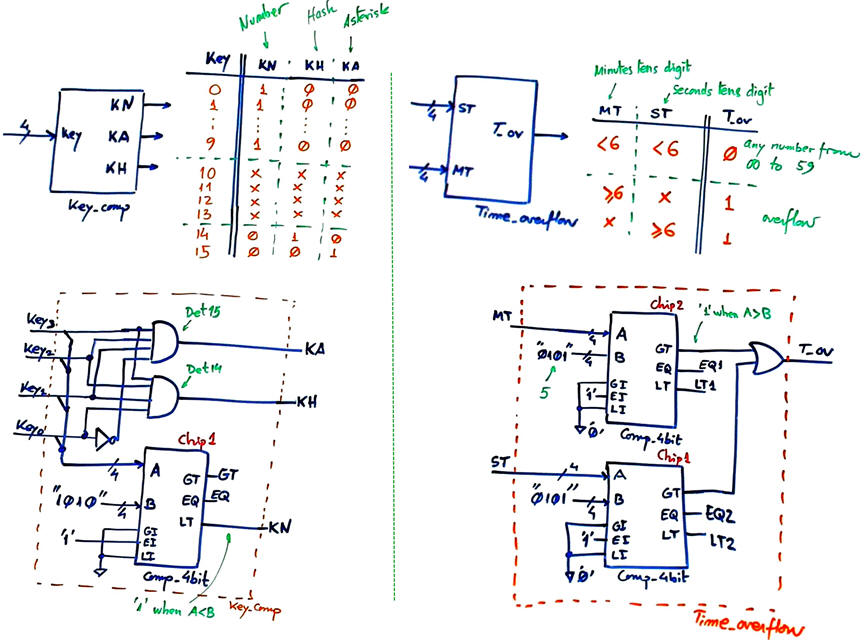 Number
Hash
Asterisk
Key KN KH KA
0 1 0 0
1 1 0 0
9 1 0 0
10 x x x
11 x x x
12 x x x
13 x x x
14 0 1 0
15 0 0 1
4
Key
KN
KA
KH
Key_comp
4
ST
4
MT
T_ov
Time_overflow
Minutes tens digit
seconds tens digit
MT ST T_ov
<6 <6 0
any number from
00 to 59
≥6 x 1
x ≥6 1
overflow
Key3
Key2
Key1
Key0
Det15
KA
Det14
KH
Chip1
4
A
"1010"
4
B
'1'
GI
EI
LI
GT
GT
EQ
EQ
LT
KN
Comp_4bit
'1' when A<B
Key_comp
Chip2
'1' when A>B
MT
4
A
"0101"
4
B
5
GI
'1'
EI
LI
'0'
GT
EQ
EQ1
LT
LT1
T_ov
Comp_4bit
Chip1
ST
4
A
"0101"
4
B
GI
'1'
EI
LI
'0'
GT
EQ
EQ2
LT
LT2
Comp_4bit
Time_overflow